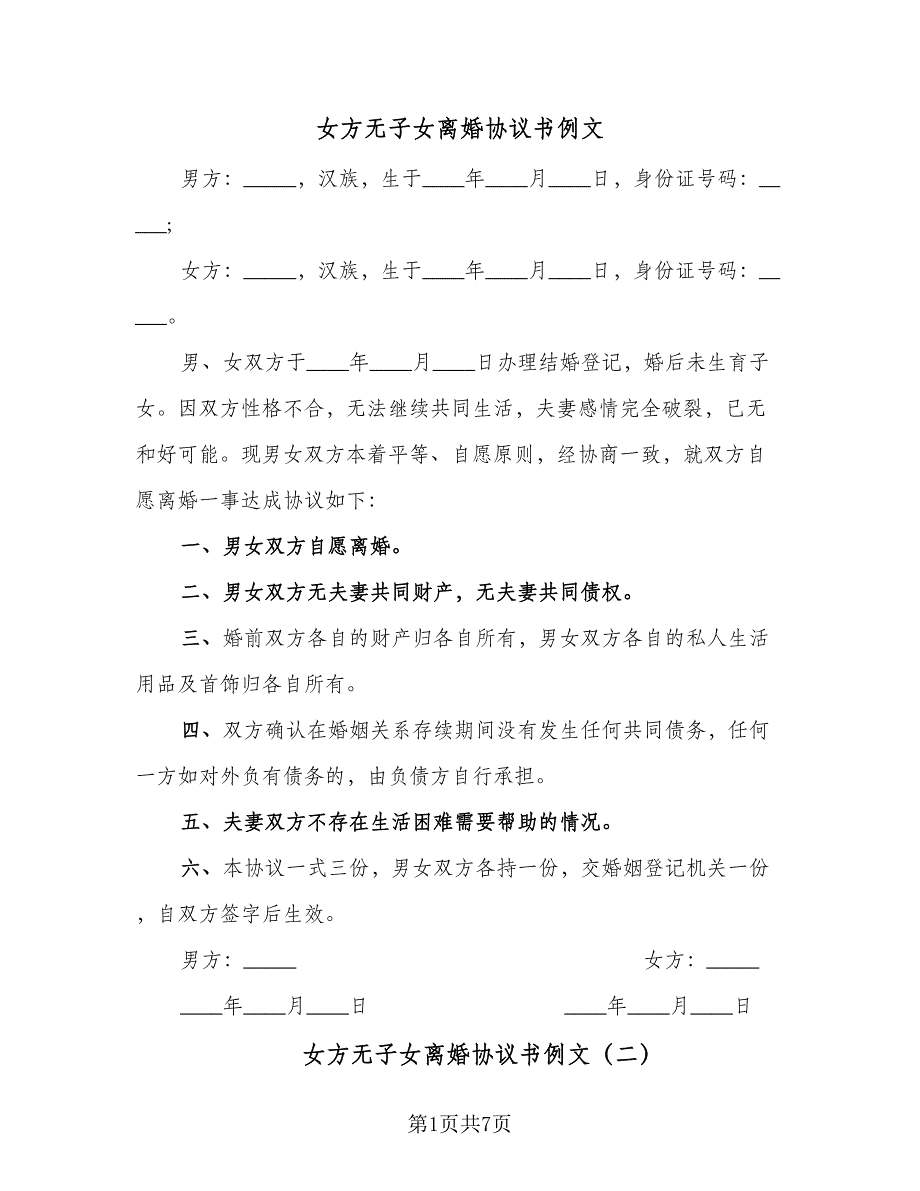 女方无子女离婚协议书例文
男方：_____，汉族，生于____年____月____日，身份证号码：__
___;
女方：_____，汉族，生于____年____月____日，身份证号码：__
___。
男、女双方于____年____月____日办理结婚登记，婚后未生育子
女。因双方性格不合，无法继续共同生活，夫妻感情完全破裂，已无
和好可能。现男女双方本着平等、自愿原则，经协商一致，就双方自
愿离婚一事达成协议如下：
一、男女双方自愿离婚。
二、男女双方无夫妻共同财产，无夫妻共同债权。
三、婚前双方各自的财产归各自所有，男女双方各自的私人生活
用品及首饰归各自所有。
四、双方确认在婚姻关系存续期间没有发生任何共同债务，任何
一方如对外负有债务的，由负债方自行承担。
五、夫妻双方不存在生活困难需要帮助的情况。
六、本协议一式三份，男女双方各持一份，交婚姻登记机关一份
，自双方签字后生效。
男方：_____ 女方：_____
____年____月____日 ____年____月____日
女方无子女离婚协议书例文（二）
第1页共7页